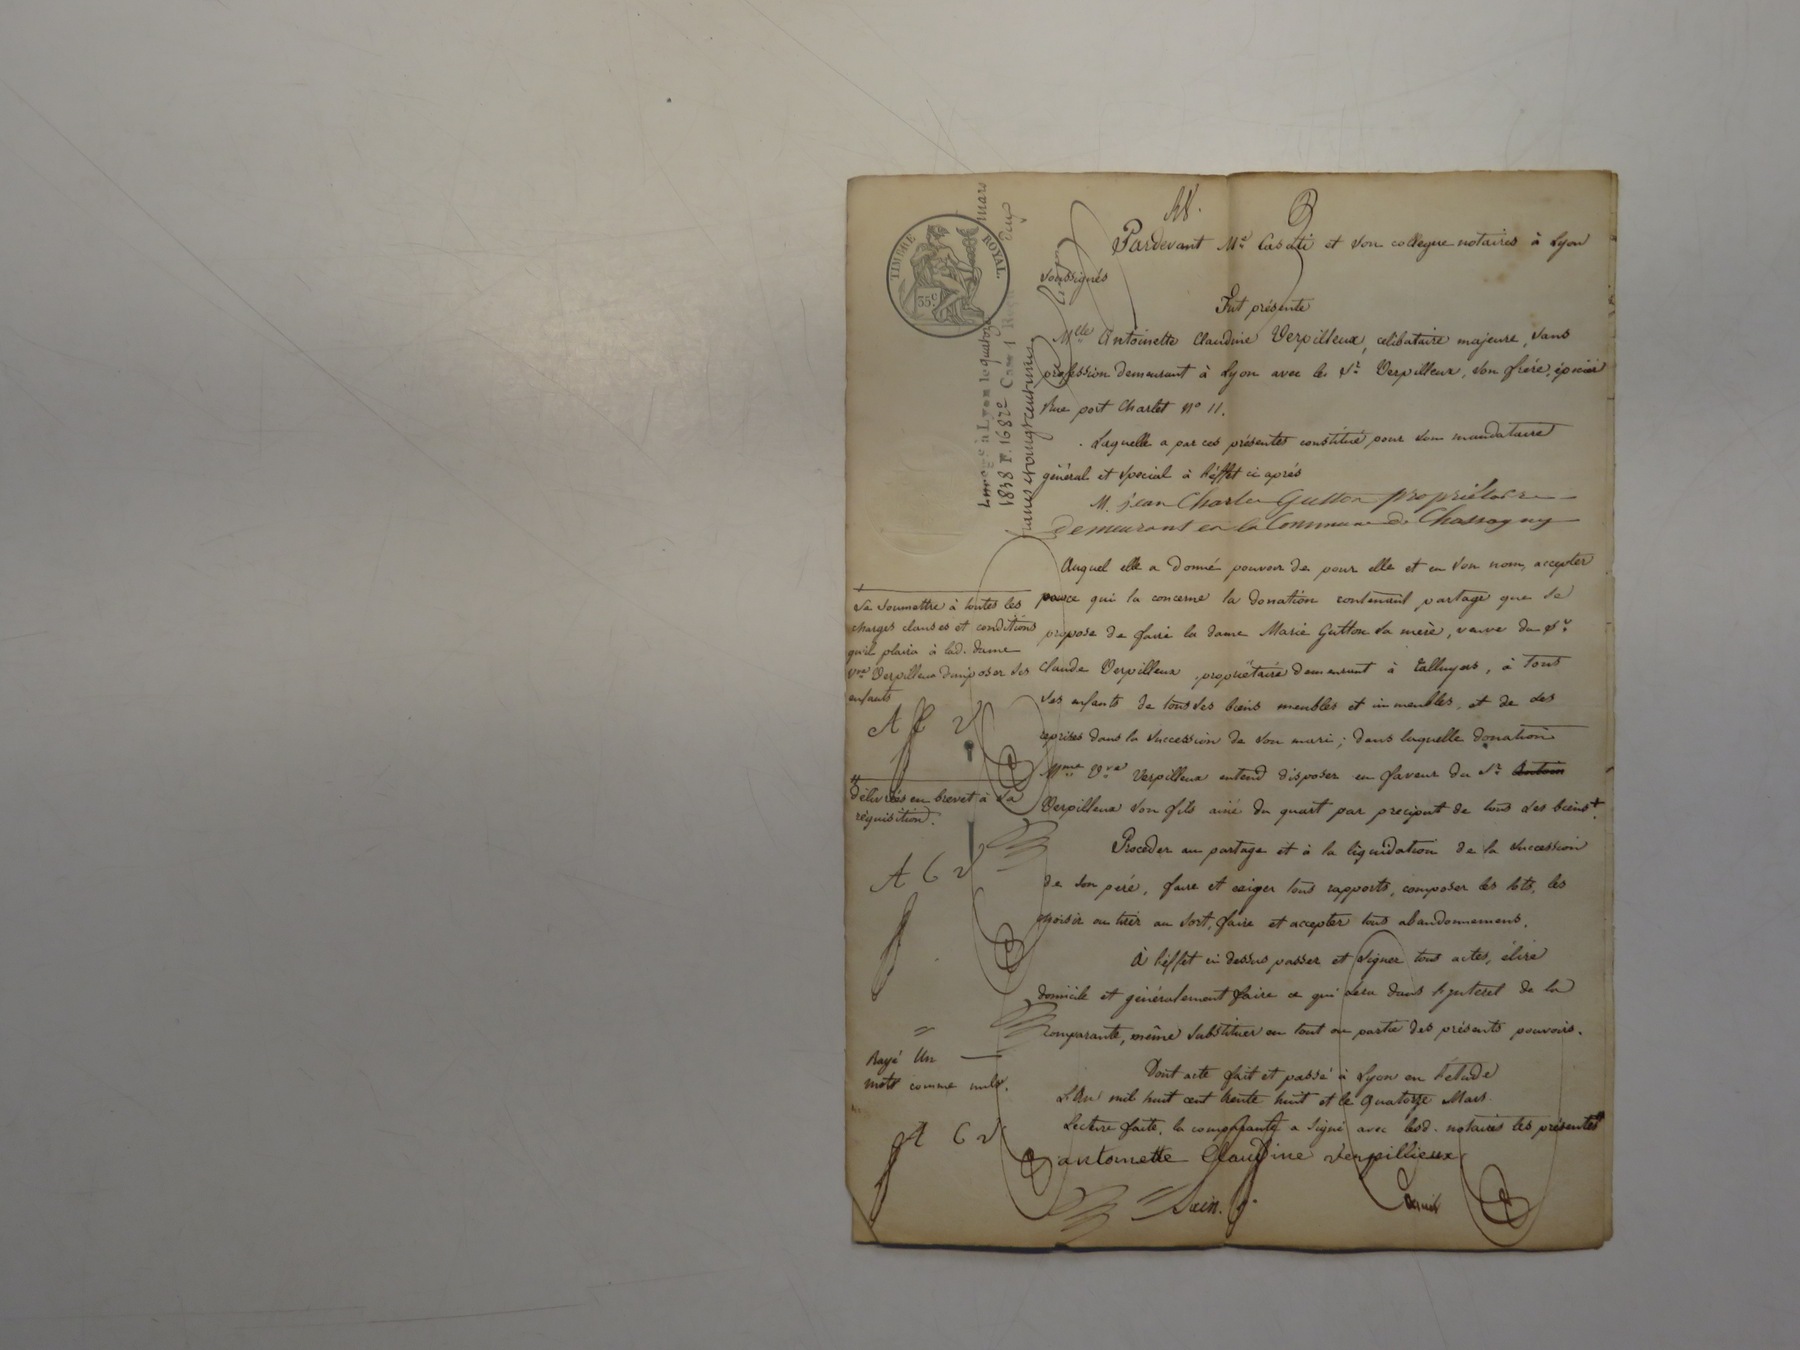 TIMBRE ROYAL.
35c
Pardevant Me Casati et son collegue notaires à Lyon
soussignés
Fut présente
Mlle Antoinette Claudine Verpilleux, celibataire majeure, sans
profession demeurant à Lyon avec le Sr. Verpilleux, son frére, épicier
Rue port Charlet No 11.
Laquelle a par ces présentes constitué pour son mandataire
général et special à l'éffet ci aprés
M. jean Charles Gutton propriétaire
demeurant en la Commune de Chassagny
Auquel elle a donné pouvoir de pour elle et en son nom, accepter
ce qui la concerne la donation contenant partage que se
propose de faire la dame Marie Gutton sa mere, veuve du Sr.
Claude Verpilleux propriétaire demeurant à Talluyers, à tous
ses enfants de tous ses biens meubles et immeubles, et de ses
reprises dans la succession de son mari; dans laquelle donation
Mme Vve Verpilleux entend disposer en faveur du Sr. Antoin
Verpilleux son fils ainé du quart par preciput de tous ses biens+.
Proceder au partage et à la liquidation de la succession
de son peré, faire et exiger tous rapports, composer les lots, les
choisir ou tirer au sort, faire et accepter tous abandonnemens.
A l'éffet ci dessus passer et signer tous actes, élire
domicile et généralement faire ce qui sera dans l'interet de la
comparante, même substituer en tout ou partie des présents pouvoirs.
Dont acte fait et passé à Lyon en l'étude
L'An mil huit cent trente huit et le quatorze Mars
Lecture faite, la comparante a signé avec lesd. notaires les présentes
antoinette Claudine verpillieux
Sain.
Casati
+
se soumettre à toutes les
charges clauses et conditions
qu'il plaira à lad. dame
Vve Verpilleux d'imposer ses
enfants
A C V
délivrées en brevet à sa
réquisition.
A C V
Rayé Un
mots comme nuls.
A C V
à Lyon le quatorze mars
1838 F. 168 Case 1
francs vingt centimes